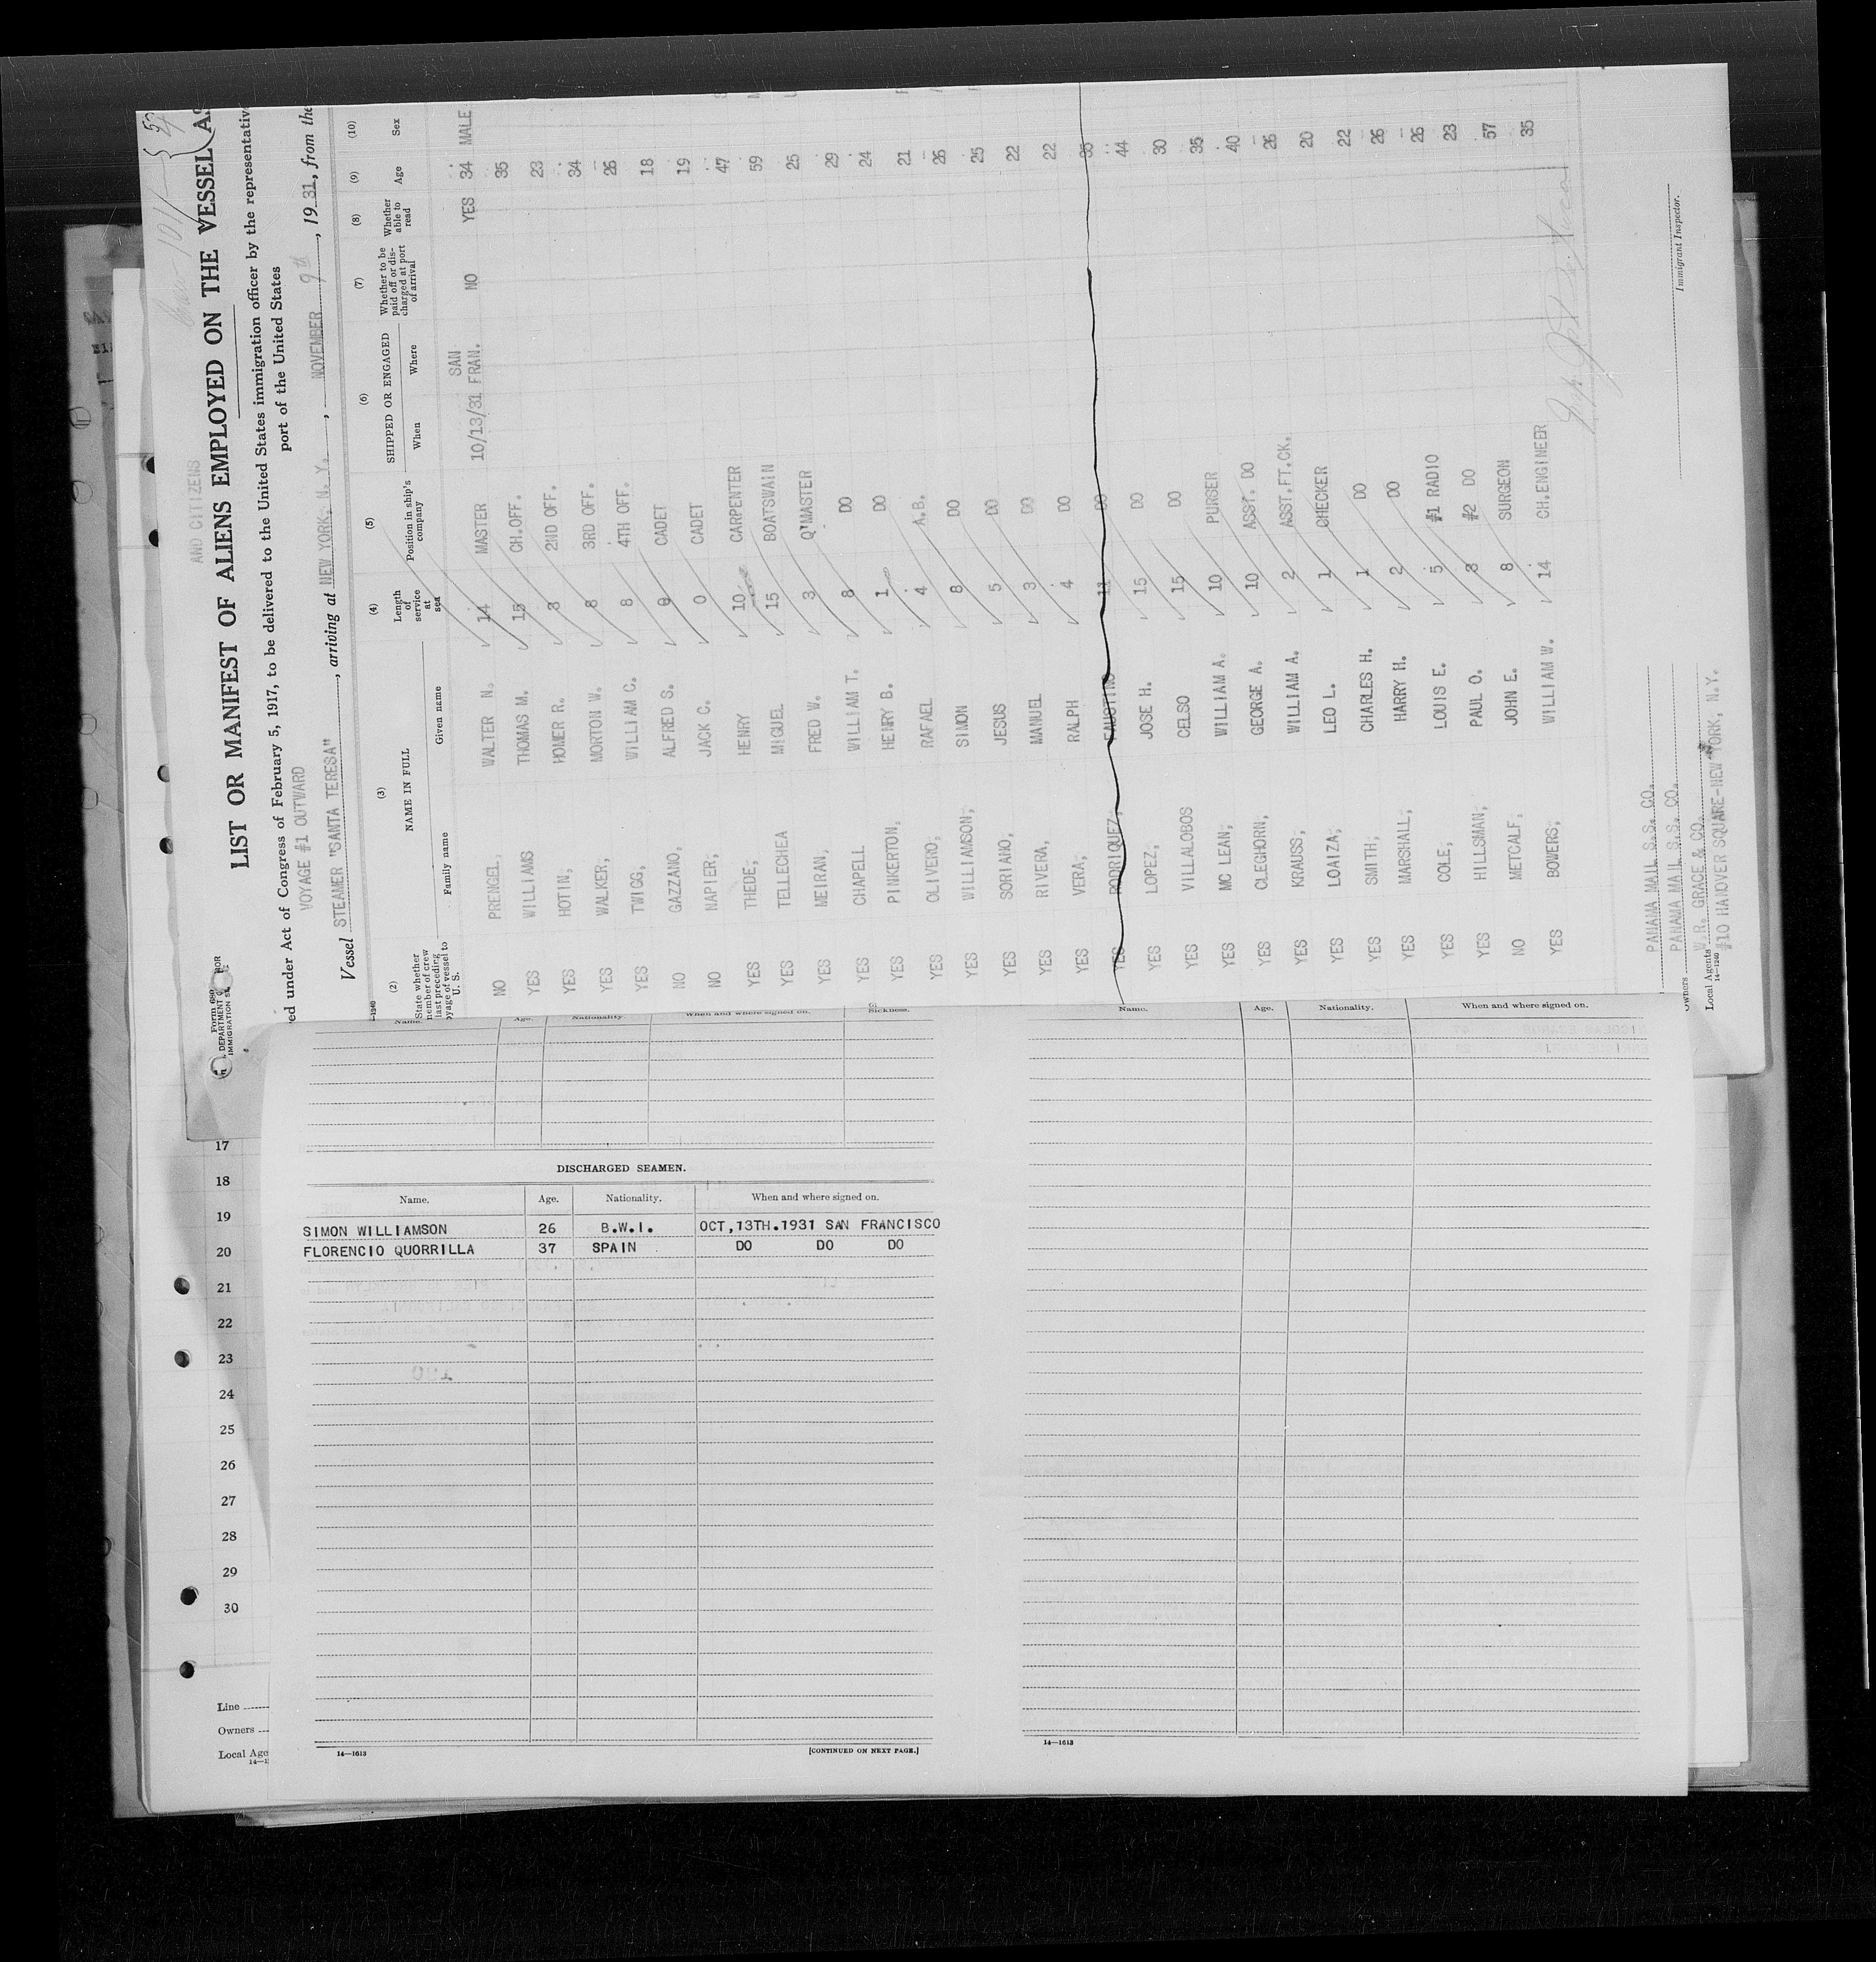 AND CITIZENS
LIST OR MANIFEST OF ALIENS EMPLOYED ON THE VESSEL AS
ed under Act of Congress of February 5, 1917, to be delivered to the United States immigration officer by the representativ
port of the United States
VOYAGE #1 OUTWARD
Vessel STEAMER "SANTA TERESA", arriving at NEW YORK, N.Y., NOVEMBER 9th, 1931, from the
(2) (3) (4) (5) (6) (7) (8) (9) (10)
State whether member of crew last preceding voyage of vessel to U. S.
NAME IN FULL
Family name Given name
Length of service at sea
Position in ship's company
SHIPPED OR ENGAGED
When Where
Whether to be paid off or discharged at port of arrival
Whether able to read
Age
Sex
NO PRENGEL, WALTER N. 14 MASTER 10/13/31 SAN FRAN. NO YES 34 MALE
YES WILLIAMS THOMAS M. 15 CH.OFF. 35
YES HOTIN, HOMER R. 3 2ND OFF. 23
YES WALKER, MORTON W. 8 3RD OFF. 34
YES TWIGG, WILLIAM C. 8 4TH OFF. 26
NO GAZZANO, ALFRED S. 0 CADET 18
NO NAPIER, JACK C. 0 CADET 19
YES THEDE, HENRY 10 CARPENTER 47
YES TELLECHEA MIGUEL 15 BOATSWAIN 59
YES MEIRAN, FRED W. 3 Q'MASTER 25
YES CHAPELL WILLIAM T. 8 DO 29
YES PINKERTON, HENRY B. 1 DO 24
YES OLIVERO, RAFAEL 4 A.B. 21
YES WILLIAMSON, SIMON 8 DO 26
YES SORIANO, JESUS 5 DO 25
YES RIVERA, MANUEL 3 DO 22
YES VERA, RALPH 4 DO 22
YES RODRIQUEZ, FAUSTINO 11 DO
YES LOPEZ, JOSE H. 15 DO 44
YES VILLALOBOS CELSO 15 DO 30
YES MC LEAN, WILLIAM A. 10 PURSER 35
YES CLEGHORN, GEORGE A. 10 ASST. DO 40
YES KRAUSS, WILLIAM A. 2 ASST.FT.CK. 26
YES LOAIZA, LEO L. 1 CHECKER 20
YES SMITH, CHARLES H. 1 DO 22
YES MARSHALL, HARRY H. 2 DO 26
YES COLE, LOUIS E. 5 #1 RADIO 26
YES HILLSMAN, PAUL O. 3 #2 DO 23
NO METCALF, JOHN E. 8 SURGEON 57
YES BOWERS, WILLIAM W. 14 CH.ENGINEER 35
PANAMA MAIL S.S. CO.
Owners PANAMA MAIL S.S. CO.
Local Agents W.R. GRACE & CO.
#10 HANOVER SQUARE-NEW YORK, N.Y.
14—1240
Immigrant Inspector.
Name. Age. Nationality. When and where signed on. Sickness.
DISCHARGED SEAMEN.
Name. Age. Nationality. When and where signed on.
SIMON WILLIAMSON 26 B.W.I. OCT,13TH.1931 SAN FRANCISCO
FLORENCIO QUORRILLA 37 SPAIN DO DO DO
14—1613 [CONTINUED ON NEXT PAGE.]
Name. Age. Nationality. When and where signed on.
14—1613
17
18
19
20
21
22
23
24
25
26
27
28
29
30
Line
Owners
Local Age